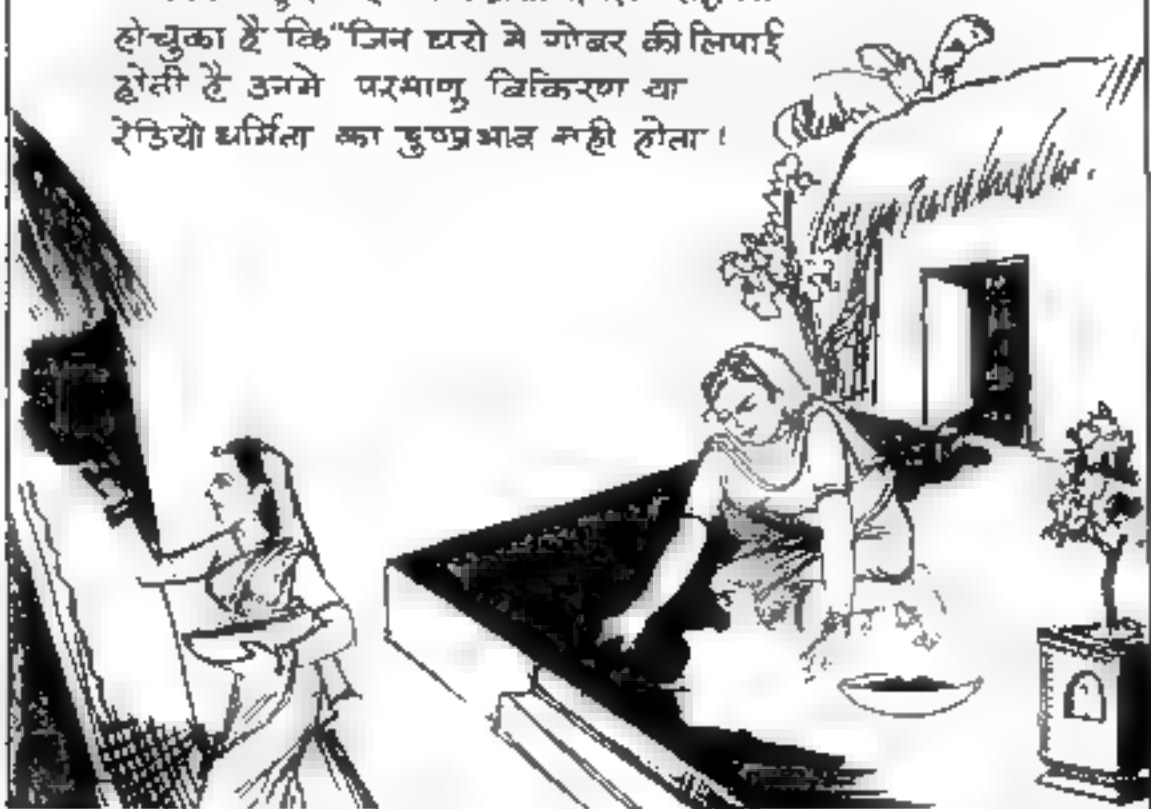 होचुका है कि "जिन घरो मे गोबर की लिपाई
होती है उनमे परमाणु विकिरण या
रेडियो धर्मिता का दुष्प्रभाव नही होता!